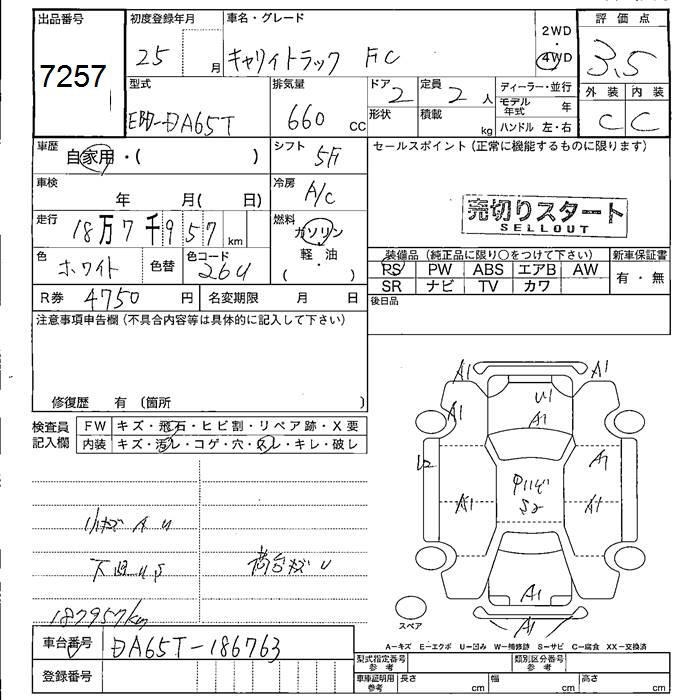 出品番号 初度登録年月 車名・グレード 2WD 4WD 評価点
7257 25 月 キャリイトラック FC 3.5
型式 排気量 ドア 定員 ディーラー・並行 外装 内装
EBD-DA65T 660 cc 2 2 人 モデル年式 年 C C
形状 積載 kg ハンドル 左・右
車歴 自家用・( ) シフト 5F セールスポイント (正常に機能するものに限ります)
車検 年 月( 日) 冷房 A/C
売切りスタート
SELLOUT
走行 18万7千957 km 燃料 ガソリン 軽・油 ( )
色 ホワイト 色替 色コード 26U
装備品 (純正品に限り○をつけて下さい) 新車保証書
PS PW ABS エアB AW 有・無
SR ナビ TV カワ
R券 4750 円 名変期限 月 日 後日品
注意事項申告欄 (不具合内容等は具体的に記入して下さい)
修復歴 有 (箇所 )
検査員記入欄 FW キズ・飛石・ヒビ割・リペア跡・X要
内装 キズ・汚レ・コゲ・穴・スレ・キレ・破レ
A1 A1
A1 U1
A1
U2 A1
A1 S2 A1
A1
A1
小キズ A U
下廻 U S 荷台キズ U
187957km
スペア
A-キズ E-エクボ U-凹み W-補修跡 S-サビ C-腐食 XX-交換済
車台番号 DA65T-186763
型式指定番号 参考 類別区分番号 参考
登録番号
車庫証明用 参考 長さ cm 幅 cm 高さ cm